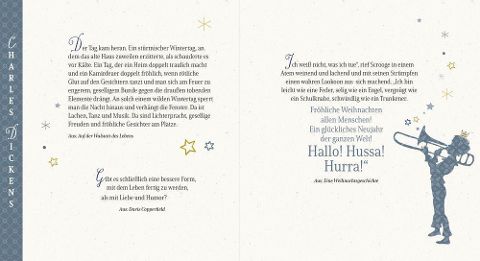 CHARLES DICKENS
Der Tag kam heran. Ein stürmischer Wintertag, an
dem das alte Haus zuweilen erzitterte, als schauderte es
vor Kälte. Ein Tag, der ein Heim doppelt traulich macht
und ein Kaminfeuer doppelt fröhlich, wenn rötliche
Glut auf den Gesichtern tanzt und man sich am Feuer zu
engerem, geselligem Bunde gegen die draußen tobenden
Elemente drängt. An solch einem wilden Wintertag sperrt
man die Nacht hinaus und verhängt die Fenster. Da ist
Lachen, Tanz und Musik. Da sind Lichterpracht, gesellige
Freuden und fröhliche Gesichter am Platze.
Aus: Auf der Walstatt des Lebens
Gibt es schließlich eine bessere Form,
mit dem Leben fertig zu werden,
als mit Liebe und Humor?
Aus: David Copperfield
Ich weiß nicht, was ich tue“, rief Scrooge in einem
Atem weinend und lachend und mit seinen Strümpfen
einen wahren Laokoon aus sich machend. „Ich bin
leicht wie eine Feder, selig wie ein Engel, vergnügt wie
ein Schulknabe, schwindlig wie ein Trunkener.
Fröhliche Weihnachten
allen Menschen!
Ein glückliches Neujahr
der ganzen Welt!
Hallo! Hussa!
Hurra!“
Aus: Eine Weihnachtsgeschichte